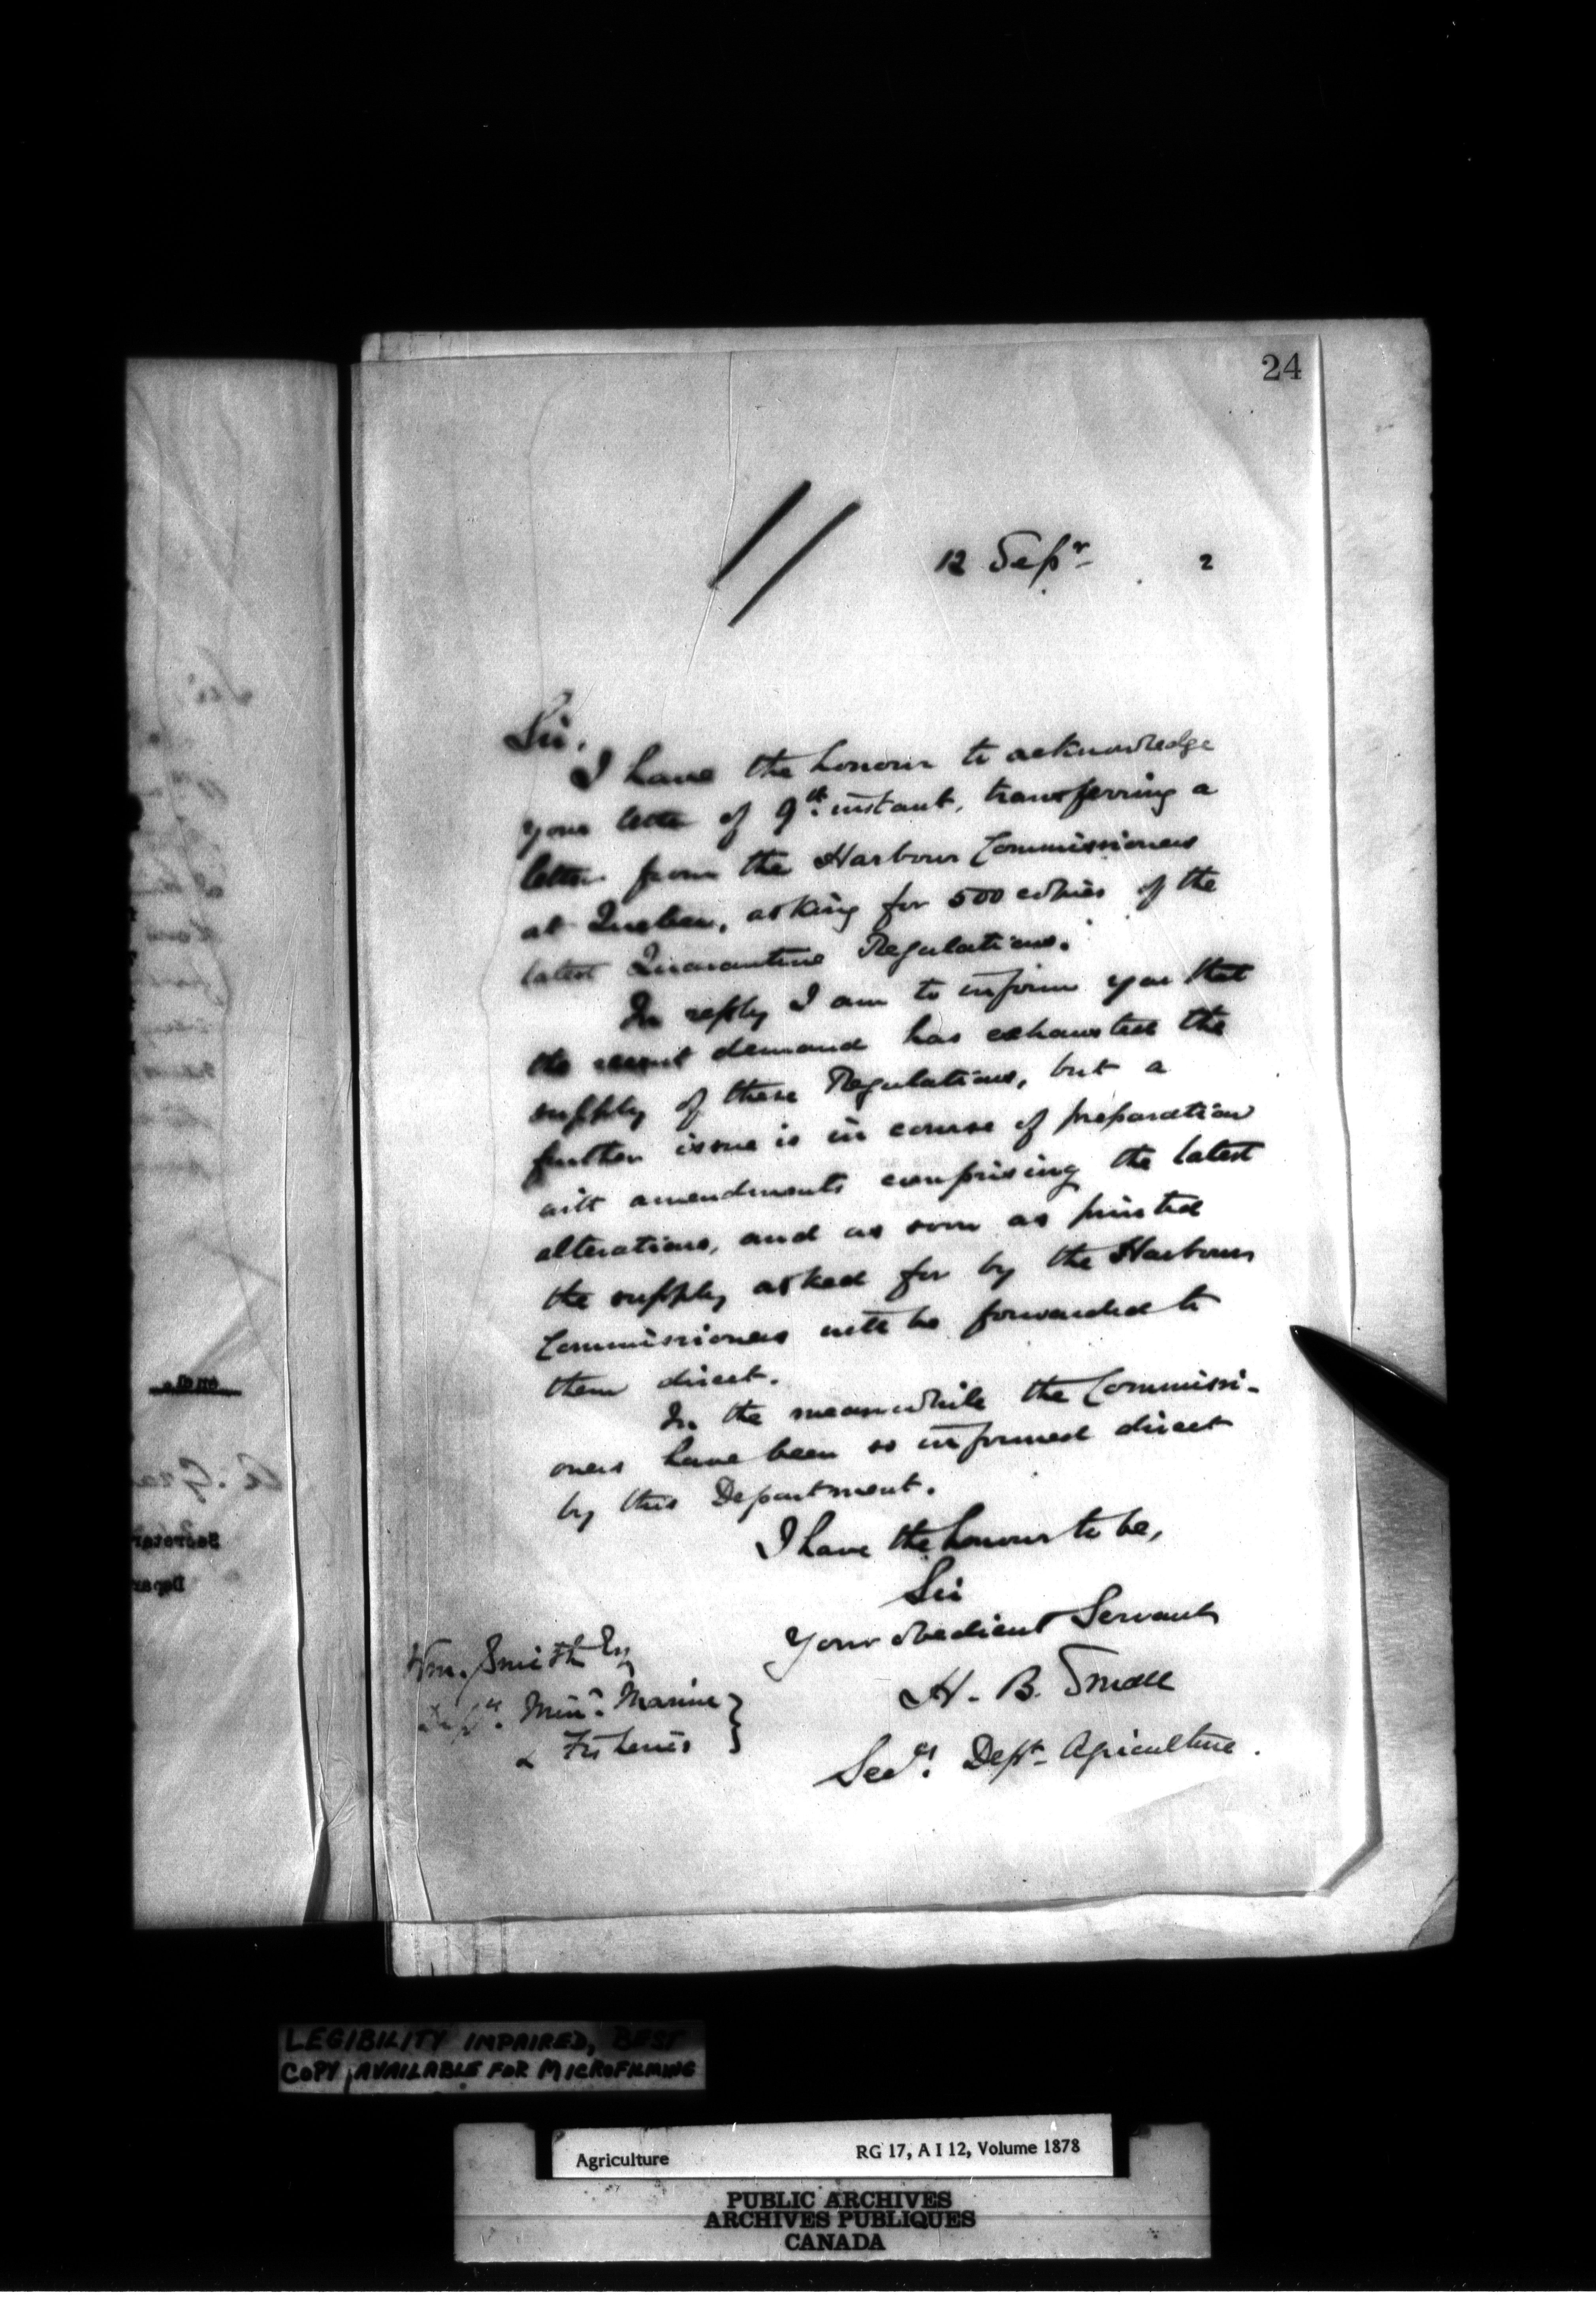 24
12 Sepr 2
Sir,
I have the honour to acknowledge
your letter of 9th instant, transferring a
letter from the Harbour Commissioners
at Quebec, asking for 500 copies of the
latest Quarantine Regulations.
In reply I am to inform you that
the recent demand has exhausted the
supply of these Regulations, but a
further issue is in course of preparation
with amendments comprising the latest
alterations, and as soon as printed
the supply asked for by the Harbour
Commissioners will be forwarded to
them direct.
In the meanwhile the Commissi-
oners have been so informed direct
by this Department.
I have the honour to be,
Sir
Your obedient Servant
H. B. Small
Secy. Dept. Agriculture.
Wm. Smith Esq
Depy. Minr. Marine
& Fisheries
LEGIBILITY IMPAIRED, BEST
COPY AVAILABLE FOR MICROFILMING
Agriculture RG 17, A I 12, Volume 1878
PUBLIC ARCHIVES
ARCHIVES PUBLIQUES
CANADA